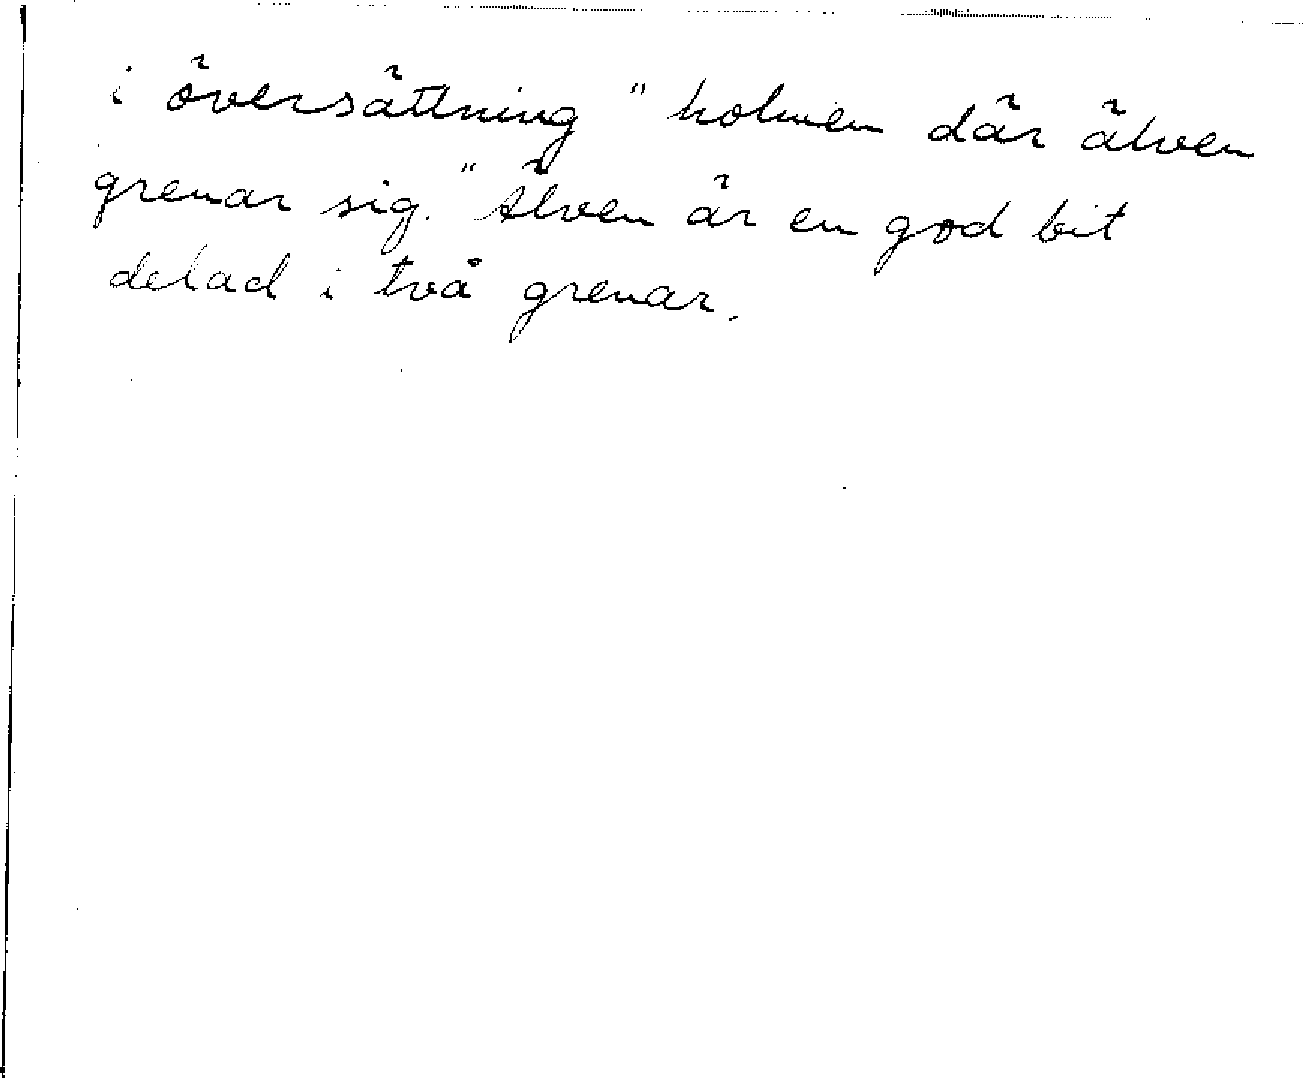 i översättning "holmen där älven
grenar sig." Älven är en god bit
delad i två grenar.